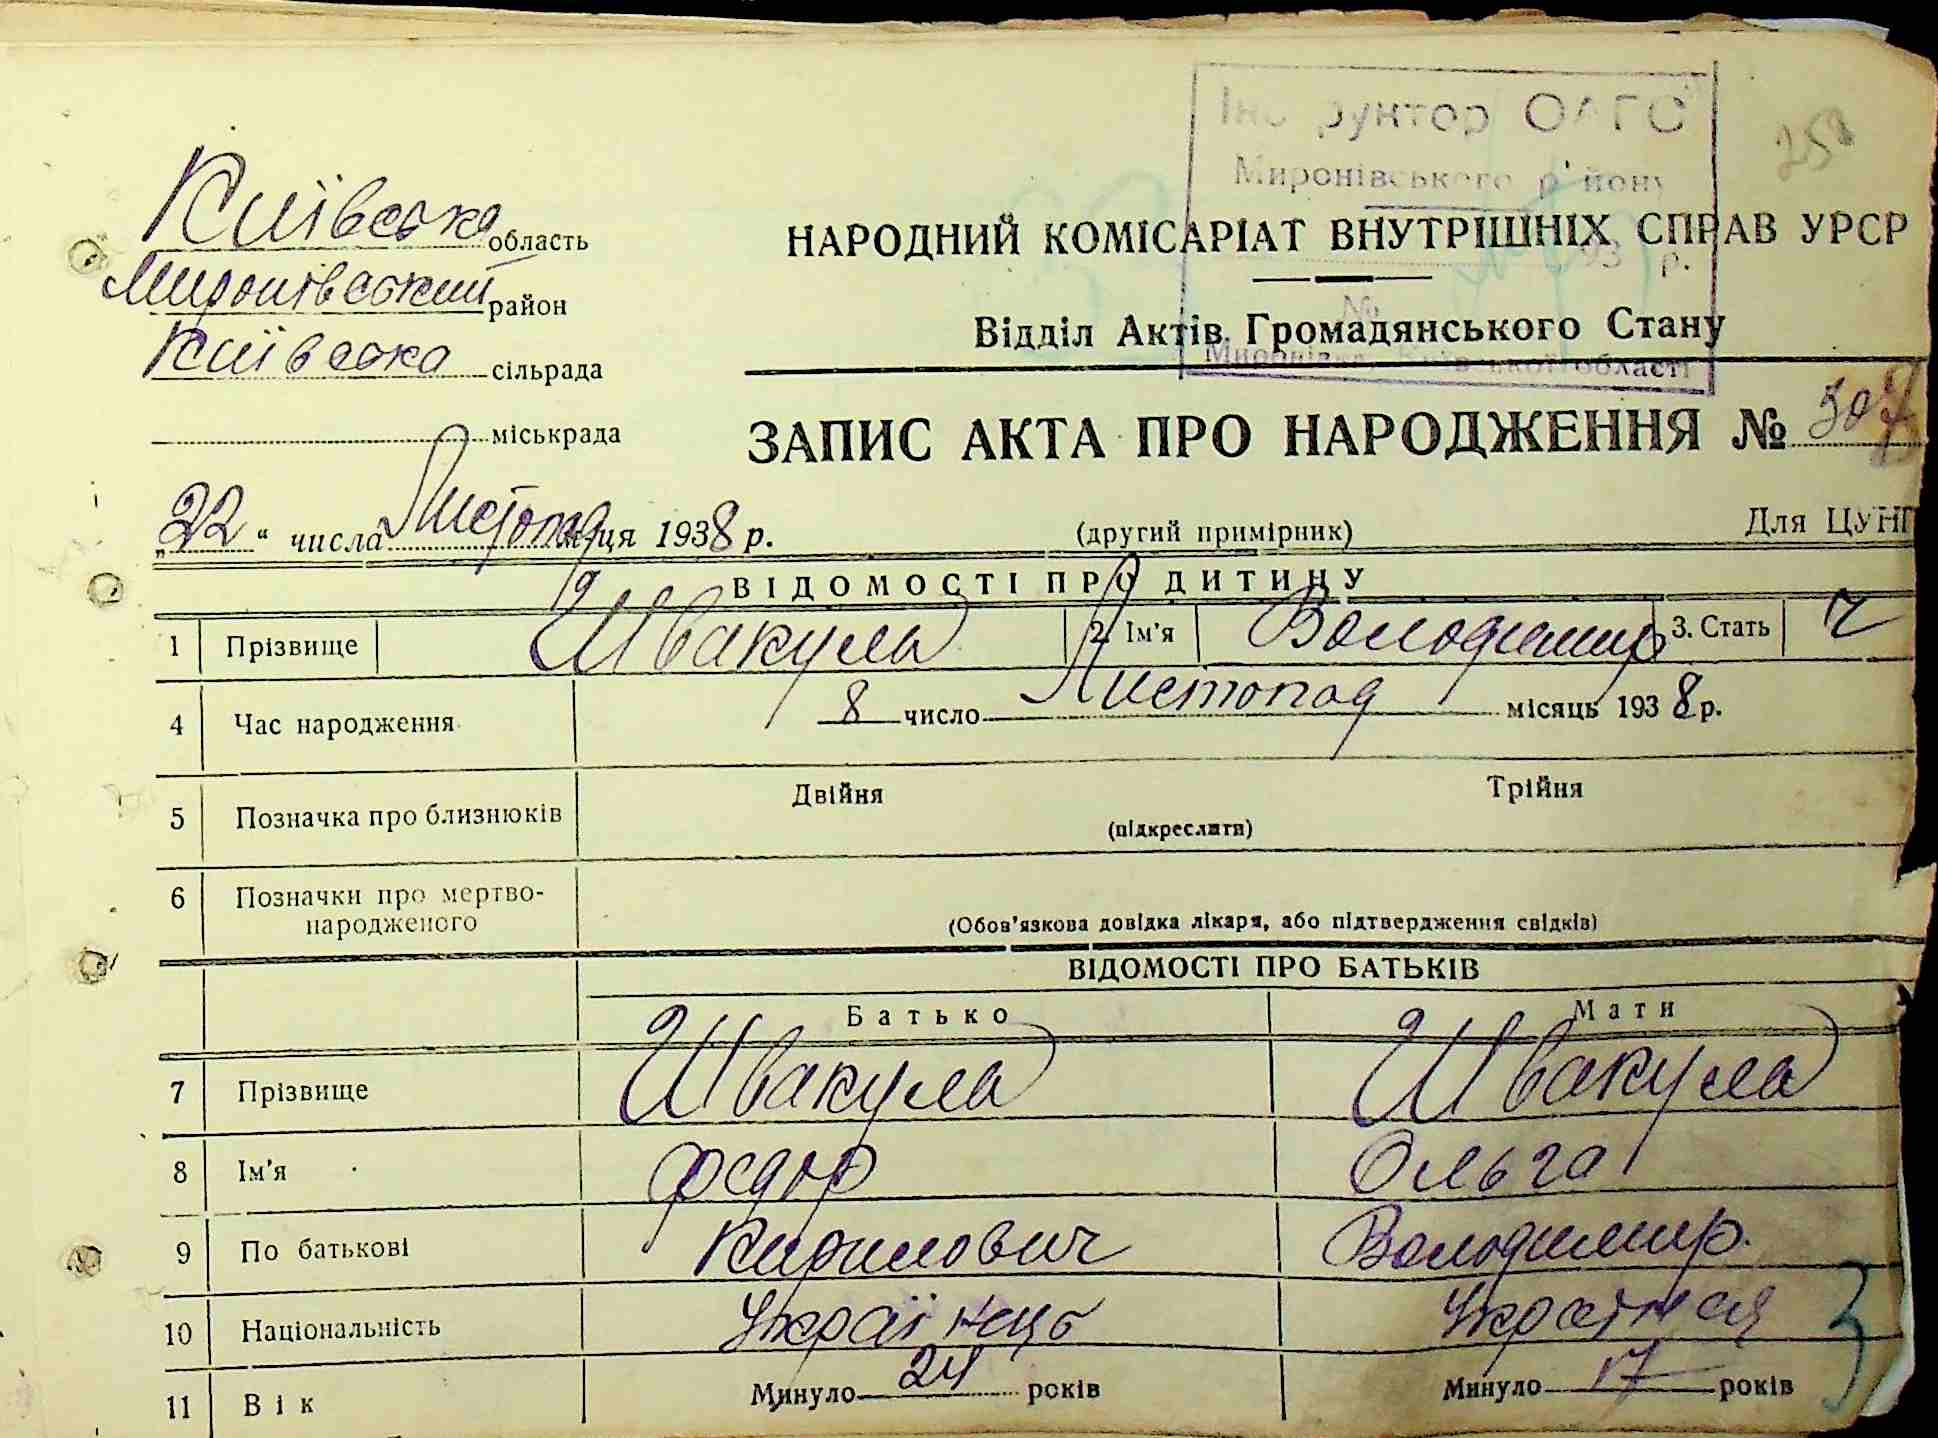 258
Інструктор ОАГС
Миронівського району
193 р.
№
Миронівка, Київської області
Київська область
Миронівський район
Київська сільрада
міськрада
НАРОДНИЙ КОМІСАРІАТ ВНУТРІШНІХ СПРАВ УРСР
Відділ Актів Громадянського Стану
ЗАПИС АКТА ПРО НАРОДЖЕННЯ №
„22“ числа Листопад місяця 1938 р.
(другий примірник)
Для ЦУНГ
ВІДОМОСТІ ПРО ДИТИНУ
1 Прізвище Швакула 2. Ім'я Володимир 3. Стать ч
4 Час народження 8 число Листопад місяць 1938 р.
5 Позначка про близнюків Двійня Трійня
(підкреслити)
6 Позначки про мертво-
народженого
(Обов'язкова довідка лікаря, або підтвердження свідків)
ВІДОМОСТІ ПРО БАТЬКІВ
Батько Мати
7 Прізвище Швакула Швакула
8 Ім'я Федір Ольга
9 По батькові Кирилович Володимир.
10 Національність Українець Українка
11 Вік Минуло 24 років Минуло 17 років